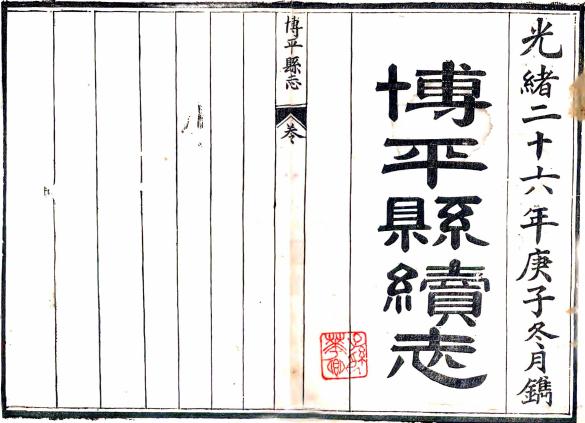 光緒二十六年庚子冬月鐫
博平縣續志
博平縣志
卷